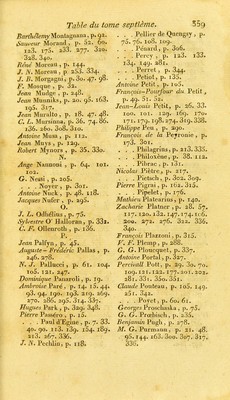 Table du tome septième. 559
Barthélemy Montagnana, p. 91.
Sauveur Morand, p. 52. 60.
123. 175. 233. 277. 320.
328. 340.
Réné Moreau, p. 144.
J. N. Moreau, p. 253. 334.
J. B. Morgagni, p. 30. 47. 98.
F. Mosque, p. 32.
Jean Mudge, p. 248.
Jean Munniks, p. 20. 95. 163.
195. 317.
Jean Muralto, p. 18. 47. 48.
C. L. Mursinna, p. 36. 74. 86.
136. 260. 308. 310.
Antoine Musa, p. 112.
Jean Muys, p. 129.
Robert Mynors, p. 35. 330.
N.
Ange Nannoni, p. 64. 101.
102.
G. Neai, p. 205.
. . Noyer, p. 301.
Antoine Nuck, p. 48. 118.
Jacques Nufer, p. 295.
O.
J. L. Odhélius, p. 75.
Sylvestre O Halloran, p. 331.
C. F. Ollenroth, p. 136.
P.
Jean Palfyn, p. 45.
Auguste-Fréderic Pallas, p.
246. 278.
N. J. Pallucci, p. 61. 104.
105. 121. 247.
Dominique Panaroli, p. 19.
Ambroise Paré, p. 14. 15. 44.
93. 94. 190. 193. 219. 269.
270. 286. 295. 314. 337.
Hugues Park, p. 329. 348.
Pierre Passéro, p. 15.
. . Paul d'Egine, p. 7. 33.
40. 90. 113. 139. 154. 189.
213. 267. 336.
J. N. Pechlin, p. 118.
. . Pellier de Quengsy, p.
75. 76. 108. 109.
. . Pénard, p. 306.
. . Percy, p. 123. 133.
134. 149. 281.
. . Perret, p. 344.
. . Petiol, p. 135.
Antoine Petit, p. 105.
François-Pourfour du Petit,
p. 49. 51. 52.
Jean-Louis Petit, p. 26. 33.
100. 101. 129. 169. 170.
171. 179. 198. 274. 319. 338.
Philippe Peu, p. 290.
François de la Peyronie, p.
173. 301.
. . Philagrius, p. 213. 335.
. . Philoxène, p. 38. 112.
. . Pibrac, p. 131.
Nicolas Piètre, p. 217.
. . Pietsch, p. 302. 309.
Pierre Pigrai, p. 162. 315.
. . Pipelet, p. 176.
Mathieu Platearius, p. 140.
Zacharie Platner, p. 28. 57.
117. 120. 132. 147. 174. 166.
200. 272. 276. 312. 336.
340.
François Plazzoni, p. 315.
F. F. Plemp, p. 288.
G. G. Ploucquet, p. 337.
Antoine Portal, p. 327.
Percivall Pott, p. 29. 30. 70.
109. 121. 122. 177. 201. 202.
281. 331. 350. 351.
Claude Pouteau, p. 105. 149.
251. 342.
. . Poyet, p. 60. 61.
Georges Proschaska, p. 75.
G. G. Prœbisch, p. 235.
Benjamin Pugh, p. 278.
M. G. Purmann, p. 21. 48.
95. 144. 163. 300. 307. 317.
338.